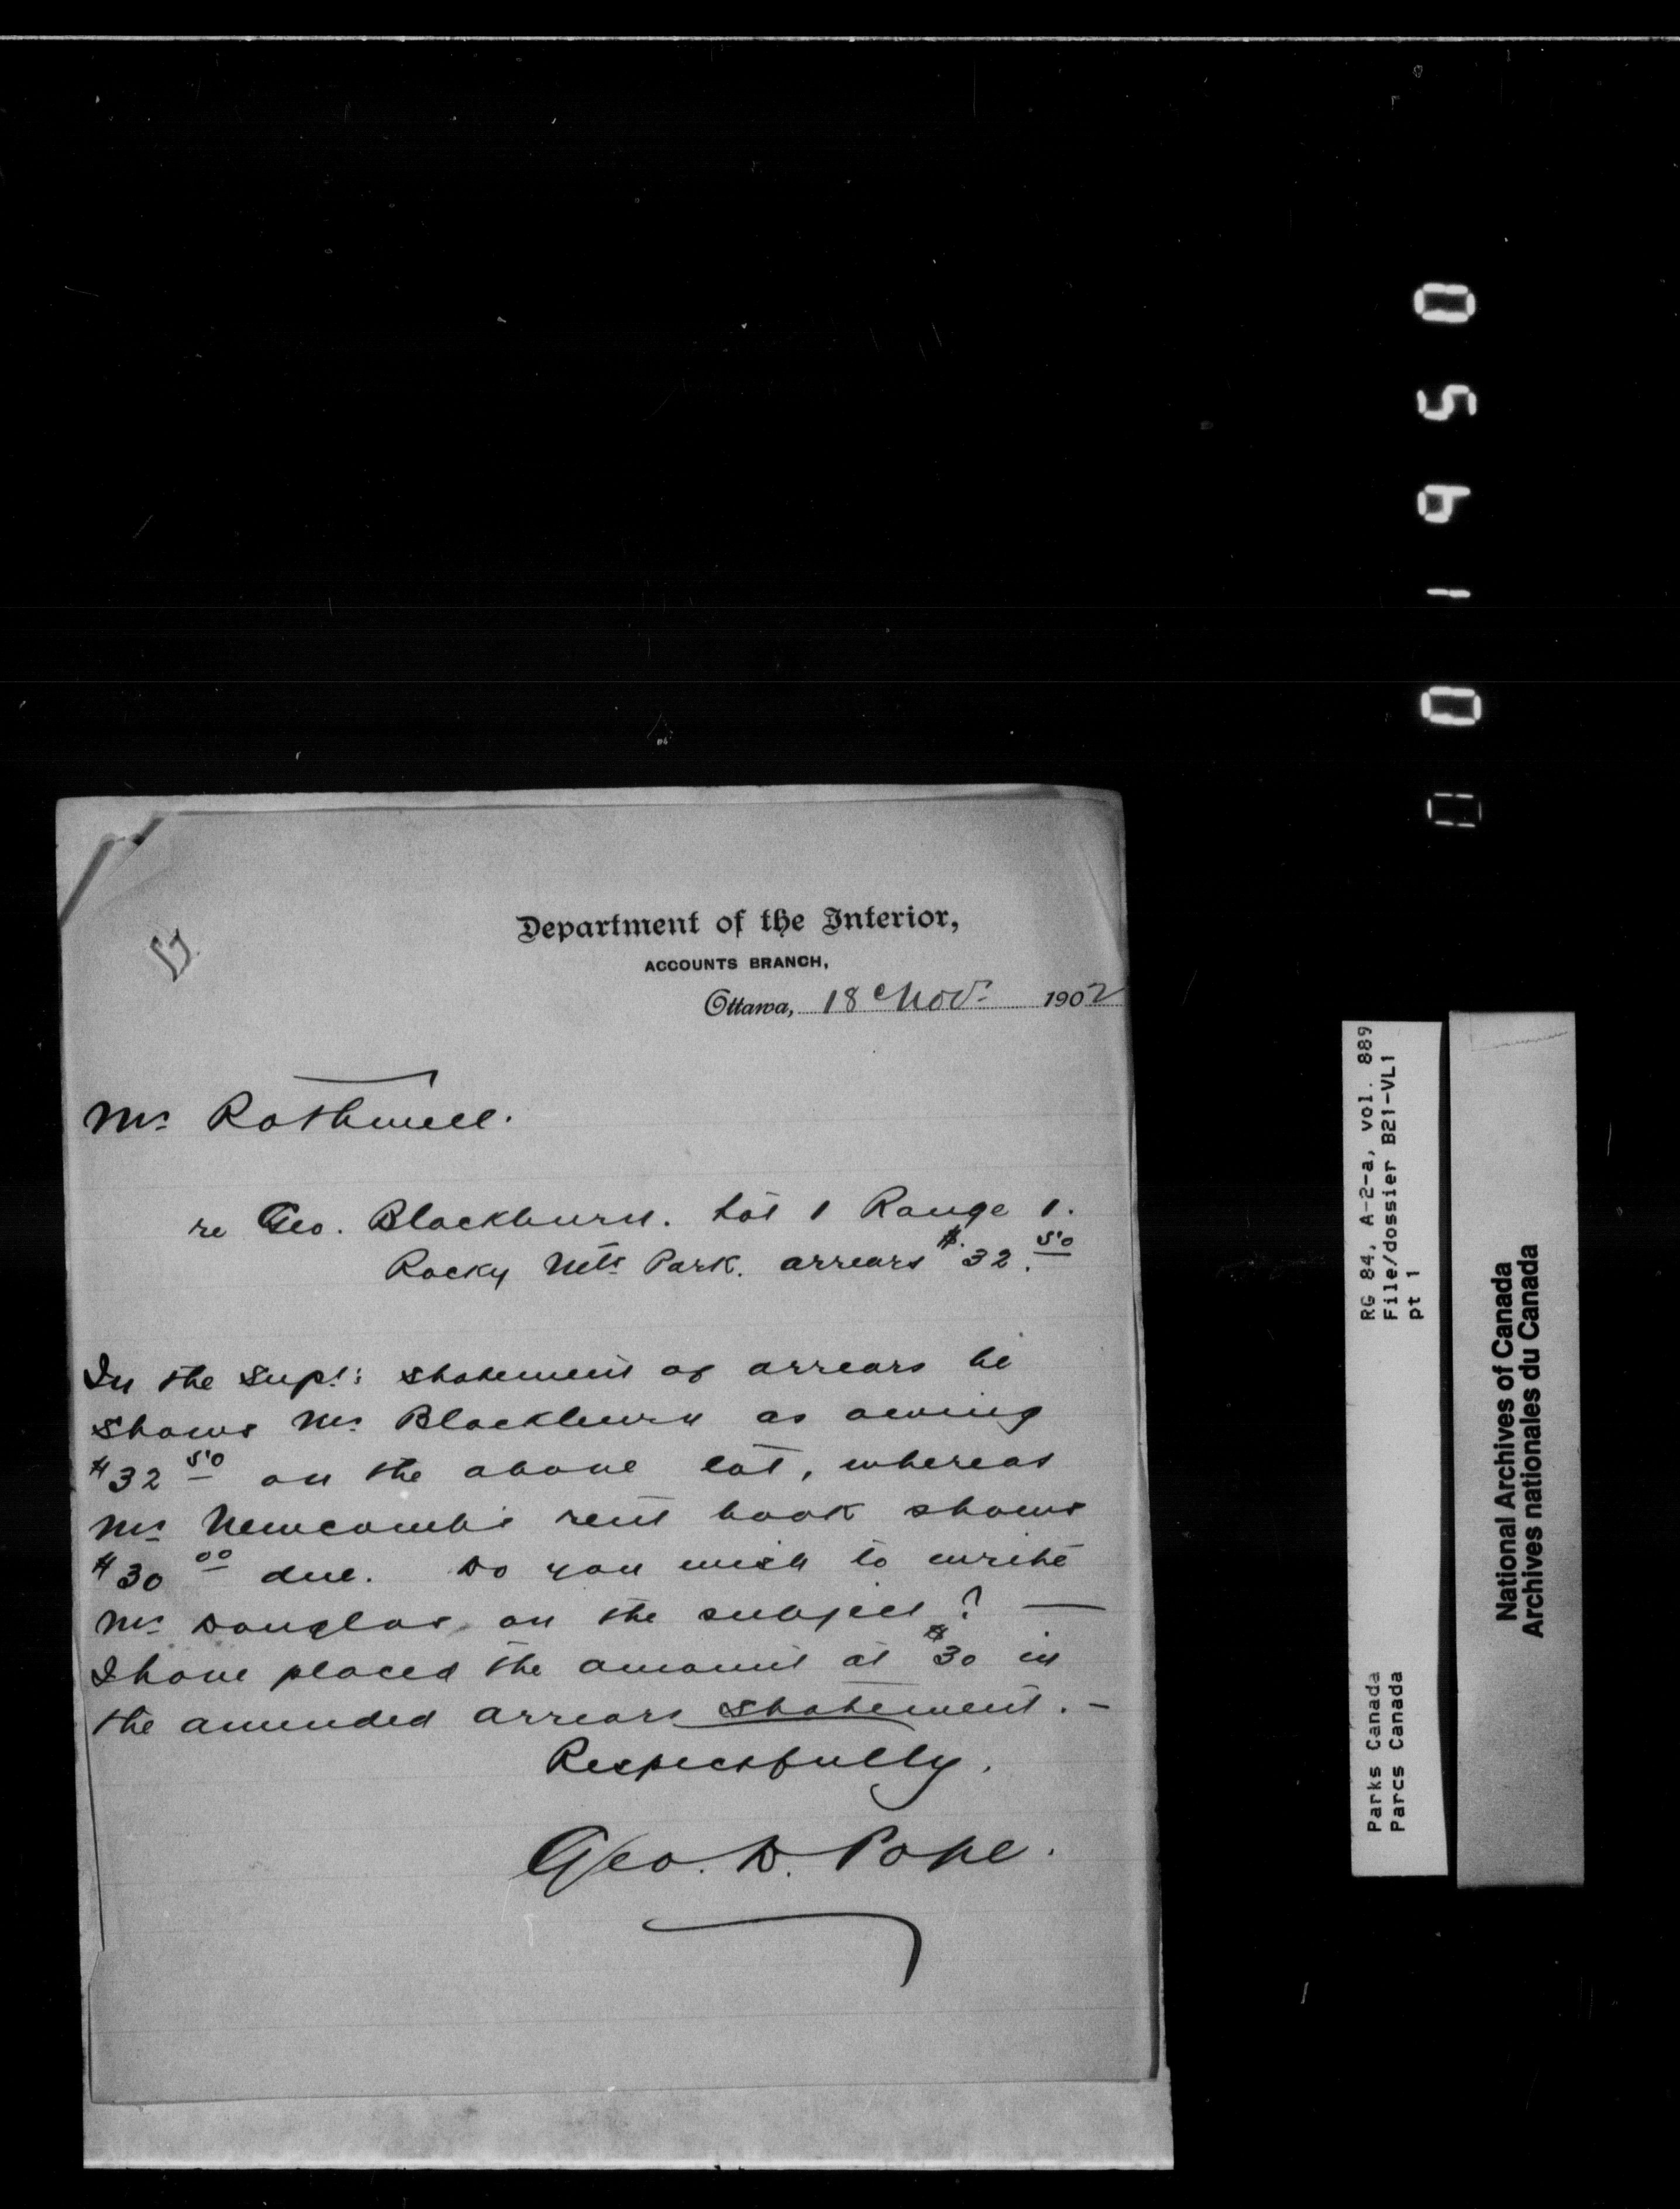 Department of the Interior,
ACCOUNTS BRANCH,
Ottawa, 18 Nov. 1902
Mr. Rothwell.
re Geo. Blackburn. Lot 1 Range 1.
Rocky Mts Park. arrears $32.50
In the Supt's statement of arrears he
shows Mr. Blackburn as owing
$32 50 on the above lot, whereas
Mr. Newcomb's rent book shows
$30 00 due. Do you wish to write
Mr. Douglas on the subject? —
I have placed the amount at $30 in
the amended arrears statement. –
Respectfully,
Geo. D. Pope.
RG 84, A-2-a, vol. 889
File/dossier B21-VL1
pt 1
Parks Canada
Parcs Canada
National Archives of Canada
Archives nationales du Canada